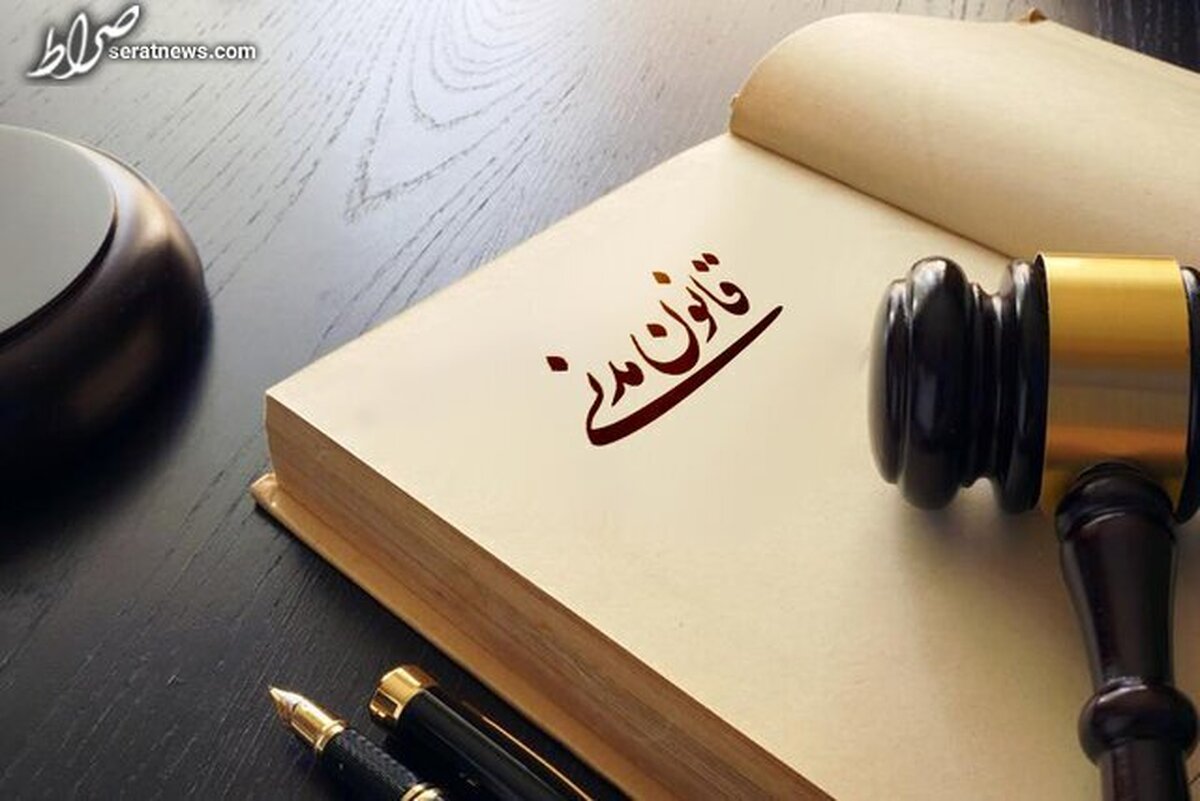 صراط
seratnews.com
قانون مدنی